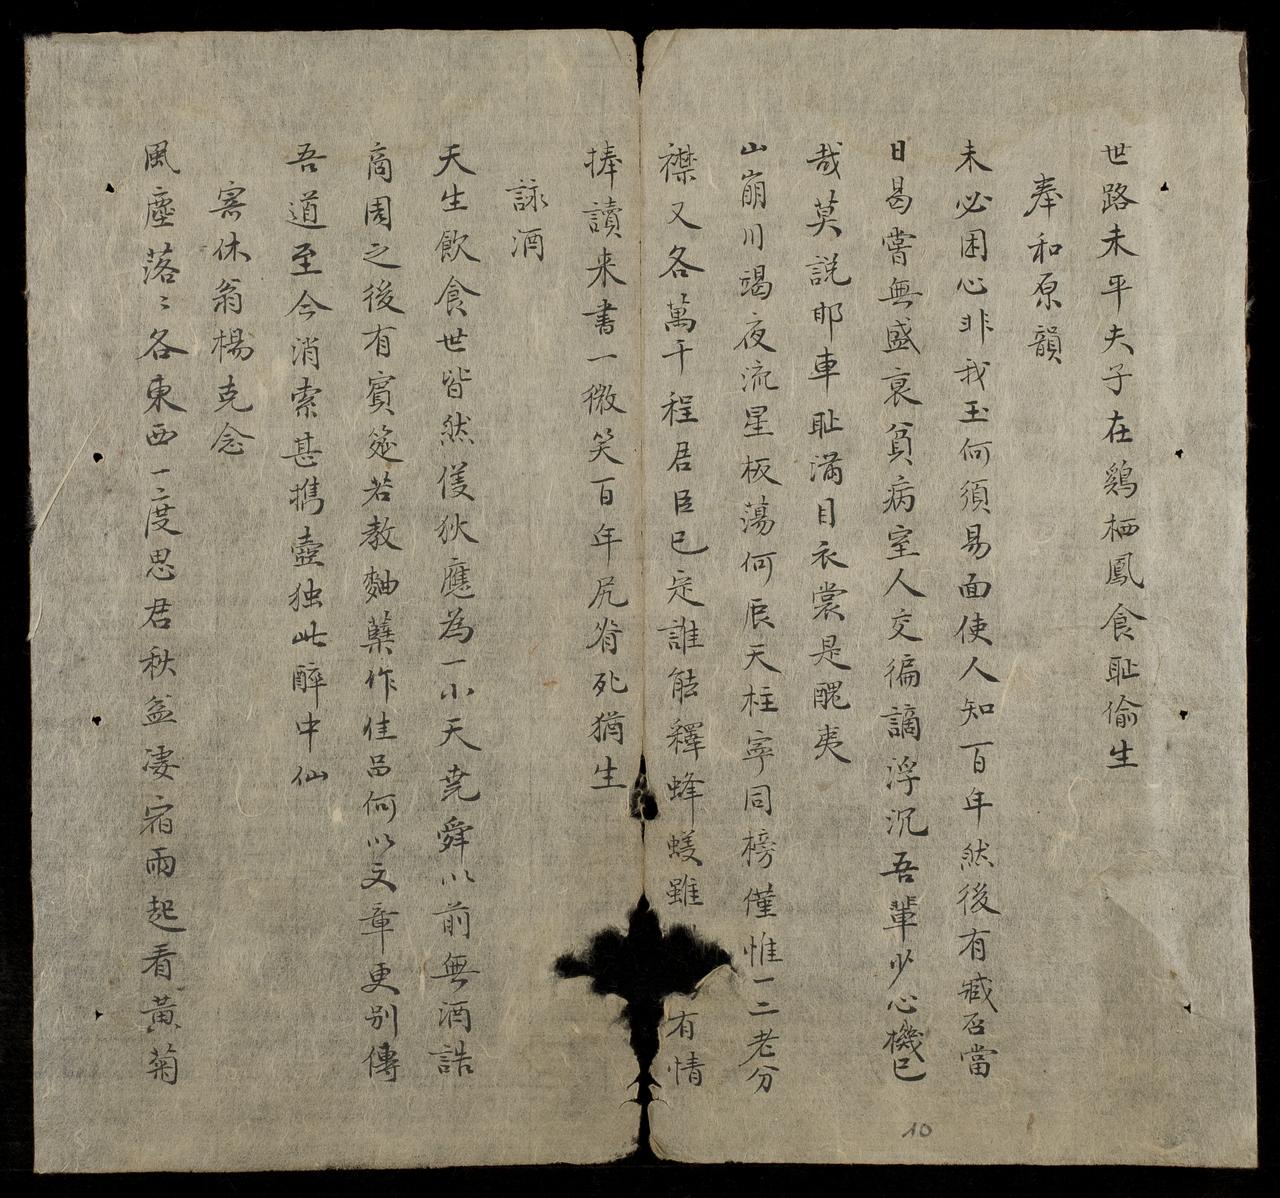 世路未平夫子在鷄栖鳳食耻偷生
奉和原韻
未必困心非我玉何須易面使人知百年然後有臧否當
日曷嘗無盛衰貧病室人交徧謫浮沉吾輩少心機已
哉莫説耶車耻滿目衣裳是醜夷
山崩川竭夜流星板蕩何辰天柱寧同榜僅惟一二老分
襟又各萬千程居臣已定誰能釋蜂蟻雖有情
捧讀来書一微笑百年尻脊死猶生
詠酒
天生飲食世皆然儀狄應為一小天堯舜以前無酒誥
商周之後有賓筵若教麯蘖作佳品何以文章更别傳
吾道至今消索甚携壺独此醉中仙
寄休翁楊克念
風塵落〻各東西一度思君秋益凄宿雨起看黃菊
10